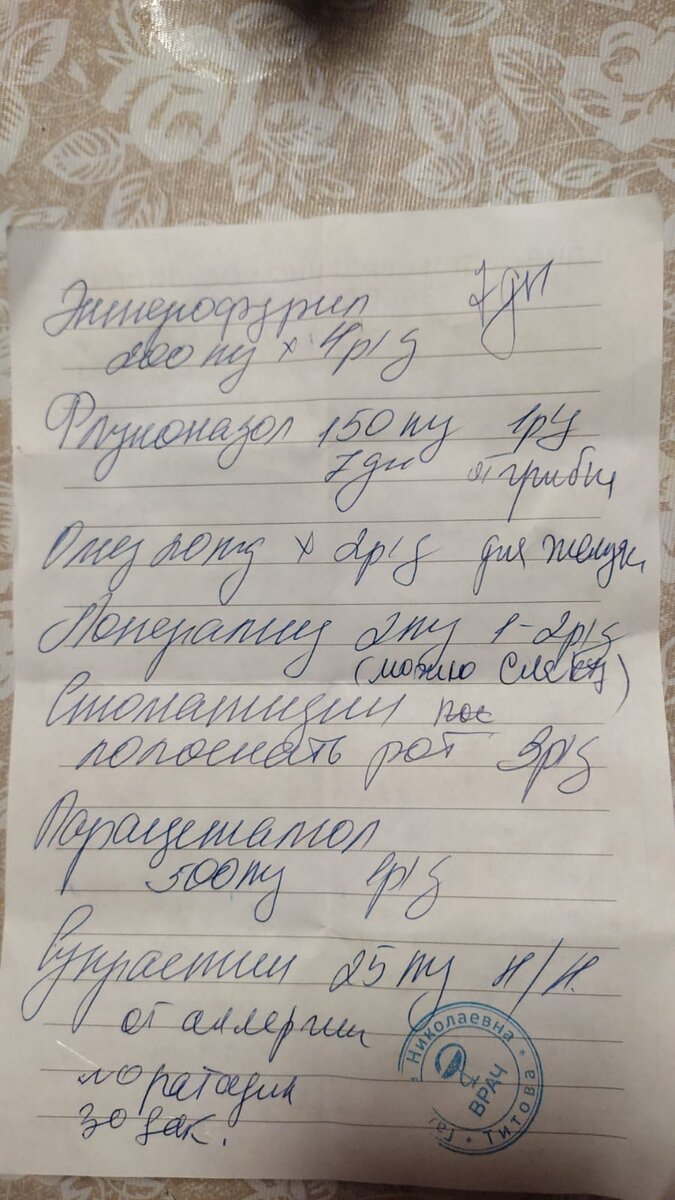 Энтерофурил 7 дн
200 мг х 4р/д
Флуконазол 150 мг 1р/д
7 дн от грибц
Омез 20 мг х 2р/д для желудк
Лоперамид 2 мг 1-2р/д
(можно
Стоматидин пос
полоскать рот 3р/д
Парацетамол
500 мг 1р/д
Супрастин 25 мг н/н.
от аллергии
лоратадин
зодак.
Николаевна
ВРАЧ
Титова